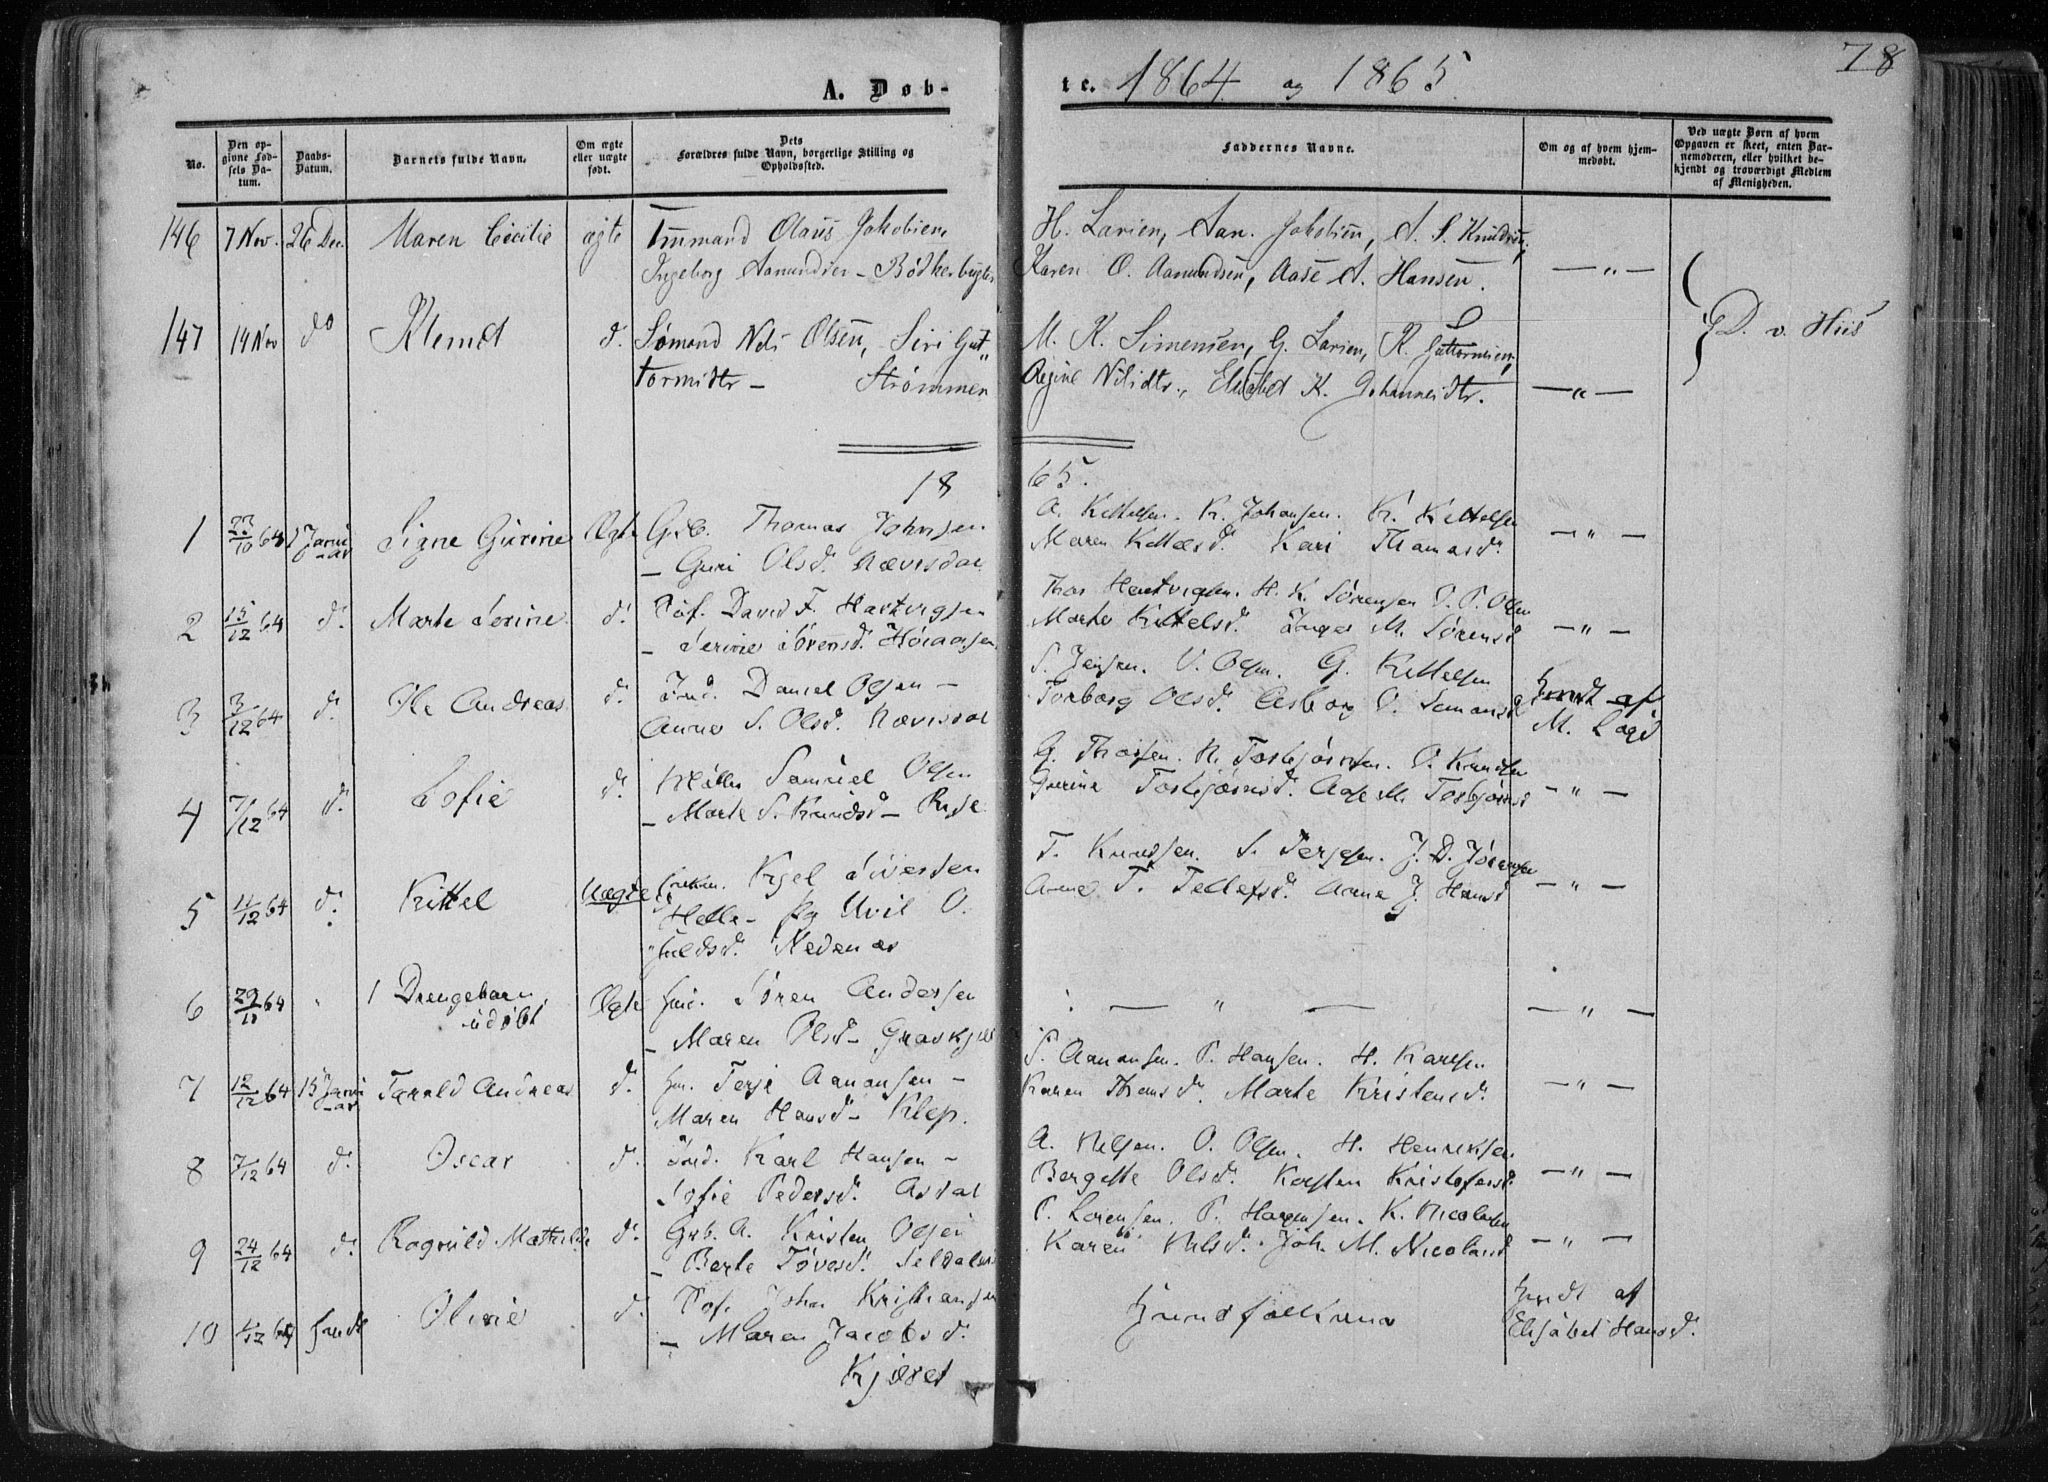 78
A. Døb-
te. 1864 og 1865
No.
Den op-
givne Fød-
sels Da-
tum.
Daabs-
Datum.
Barnets fulde Navn.
Om ægte
eller uægte
født.
Dets
Forældres fulde Navn, borgerlige Stilling og
Opholdssted.
Faddernes Navne.
Om og af hvem hjem-
medøbt.
Ved uægte Børn af hvem
Opgaven er skeet, enten Bar-
nemoderen, eller hvilket be-
kjendt og troværdigt Medlem
af Menigheden.
146 7 Nov. 26 Dec. Maren Cecilie ægte Tømmand Olaus Jakobsen,
Ingeborg Aamundsen - Bødkerbugten
H. Larsen, Aan. Jakobsen, A. S. Knudsen,
Karen O. Aamundsen, Aase A. Hansen. — " —
147 14 Nov do Klemet d. Sømand Nels Olsen, Siri Gut"
tormsdtr — Strømmen
M. K. Simensen, G. Larsen, K. Guttormsen,
Regine Nilsdtr., Elisabet K. Johannesdtr. — " —
D. v. Hiis
18
65.
1 23/10 64 1 Janu-
ar Signe Gurine Ægte Grb. Thomas Johnsen
— Guri Olsd. Nævisdal
O. Kittelsen. K. Johansen. K. Kittelsen
Maren Kittelsd. Kari Thomasd. — " —
2 15/12 64 d. Marte Serine d. Søf. David F. Hartvigsen
— Serine Sørensd. Høiaasen
Thor Hartvigsen. H. K. Sørensen O. P. Olsen
Marte Kittelsd. Inger M. Sørensd — " —
3 3/12 64 d. Ole Andreas d. Ind. Daniel Olsen —
Anne S. Olsd. Nævisdal
S. Jensen. O. Olsen. G. Kittelsen
Torborg Olsd. Asborg O. Samonsd
hjmdt af
M. Lagd
4 7/12 64 d. Sofie d. Møller Samuel Olsen
— Marte S. Knudsd —
G. Thorsen. N. Torbjørnsen. O. Knudsen
Gurine Torbjørnsd. Aase M. Torbjørnsd — " —
5 11/12 64 d. Kittel Uægte Kjel Sivertsen
Helle — Pg O.
Nedenæs
T. Knudsen. S. Terjesen. J. D. Jørensen
Anne T. Tellefsd. Anna J. Hansd — " —
6 29/10 64 " 1 Drengebarn
udøbt Ægte Søren Andersen
— Maren Olsd — Graskjær
— " — — " —
7 12/12 64 15 Janu-
ar Tarald Andreas d. Terje Aanonsen —
Maren Hansd — Klep.
S. Aanonsen. P. Hansen. H. Karlsen
Karen Thomsd. Marte Kristensd. — " —
8 7/12 64 d. Oscar d. Ind. Karl Hansen —
Sofie Pedersd. Asdal
A. Nelsen. O. Olsen. H. Henriksen
Bergette Olsd. Karsten Kristofersd. — " —
9 24/12 64 d. Ragnild Mathilde d. Grb. A. Kristen Olsen
— Berte Tøvesd. Seldalen
P. Lorensen. P. Hagensen. K. Nicolaisen
Karen Nilsd. Joh. M. Nicolaisd — " —
10 hmdt Olivie d. Søf. John Kristiansen
— Maren Jacobsd.
Kjæret
hjmdt af
Elisabet Hansd.